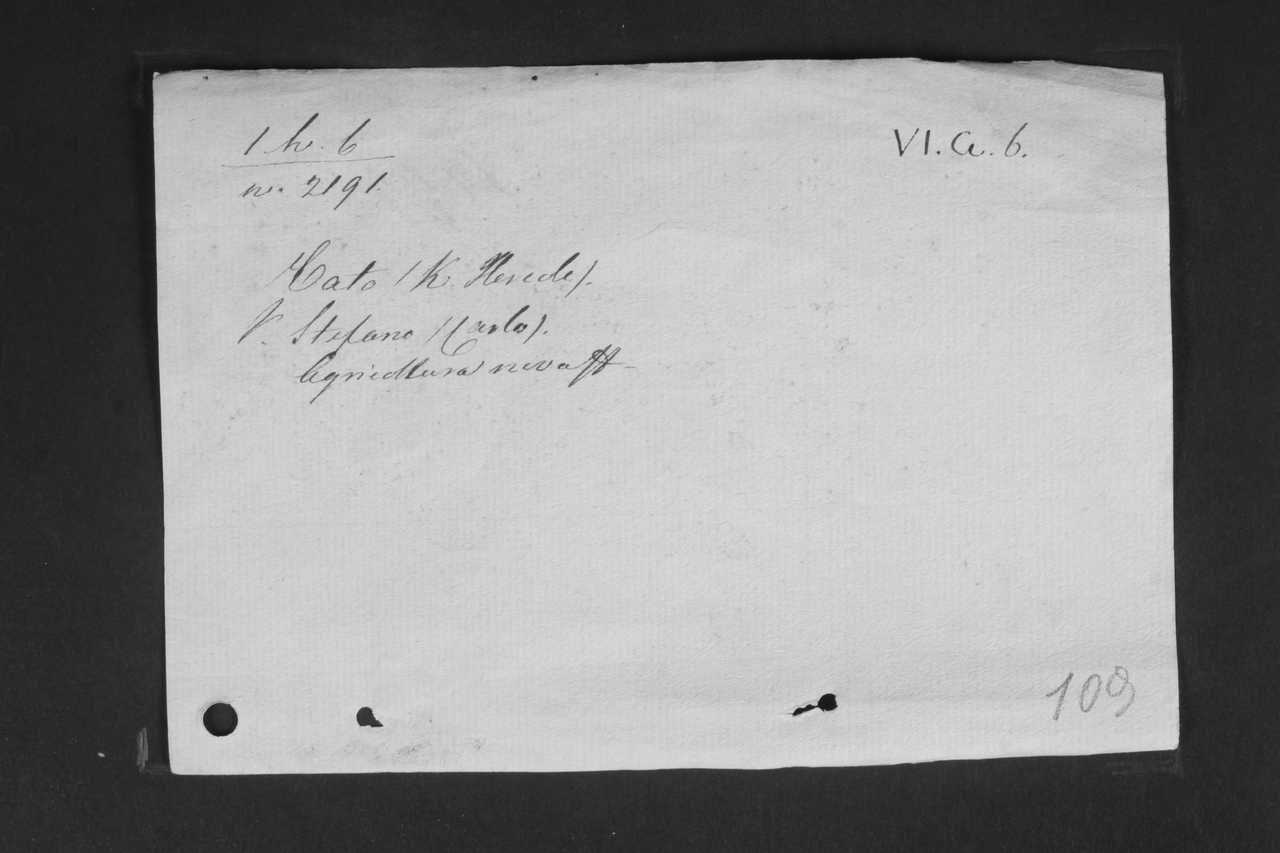 1. h. 6
VI. a. 6.
n. 2191.
Cato (K. Herede).
V. Stefano (Carlo).
Agricoltura nova
109